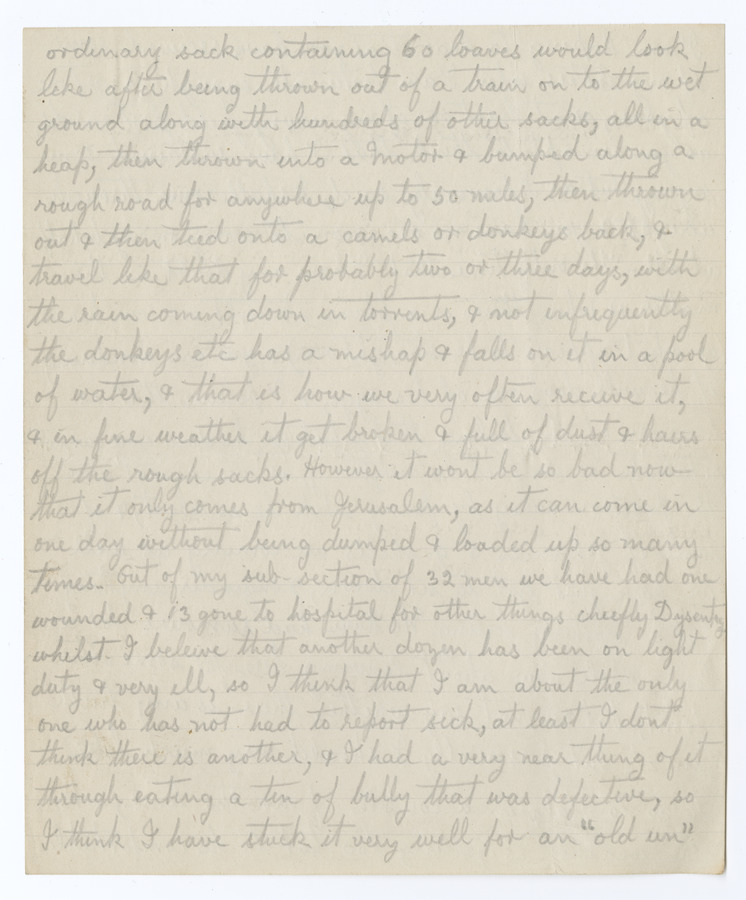 ordinary sack containing 60 loaves would look
like after being thrown out of a train on to the wet
ground along with hundreds of other sacks, all in a
heap, then thrown into a Motor & bumped along a
rough road for anywhere up to 50 miles, then thrown
out & then tied onto a camels or donkeys back, &
travel like that for probably two or three days, with
the rain coming down in torrents, & not infrequently
the donkeys etc has a mishap & falls on it in a pool
of water, & that is how we very often receive it,
& in fine weather it get broken & full of dust & hairs
off the rough sacks. However it wont be so bad now
that it only comes from Jerusalem, as it can come in
one day without being dumped & loaded up so many
times. Out of my sub-section of 32 men we have had one
wounded & 13 gone to hospital for other things cheefly Dysentry
whilst I beleive that another dozen has been on light
duty & very ill, so I think that I am about the only
one who has not had to report sick, at least I dont
think there is another, & I had a very near thing of it
through eating a tin of bully that was defective, so
I think I have stuck it very well for an "old un"